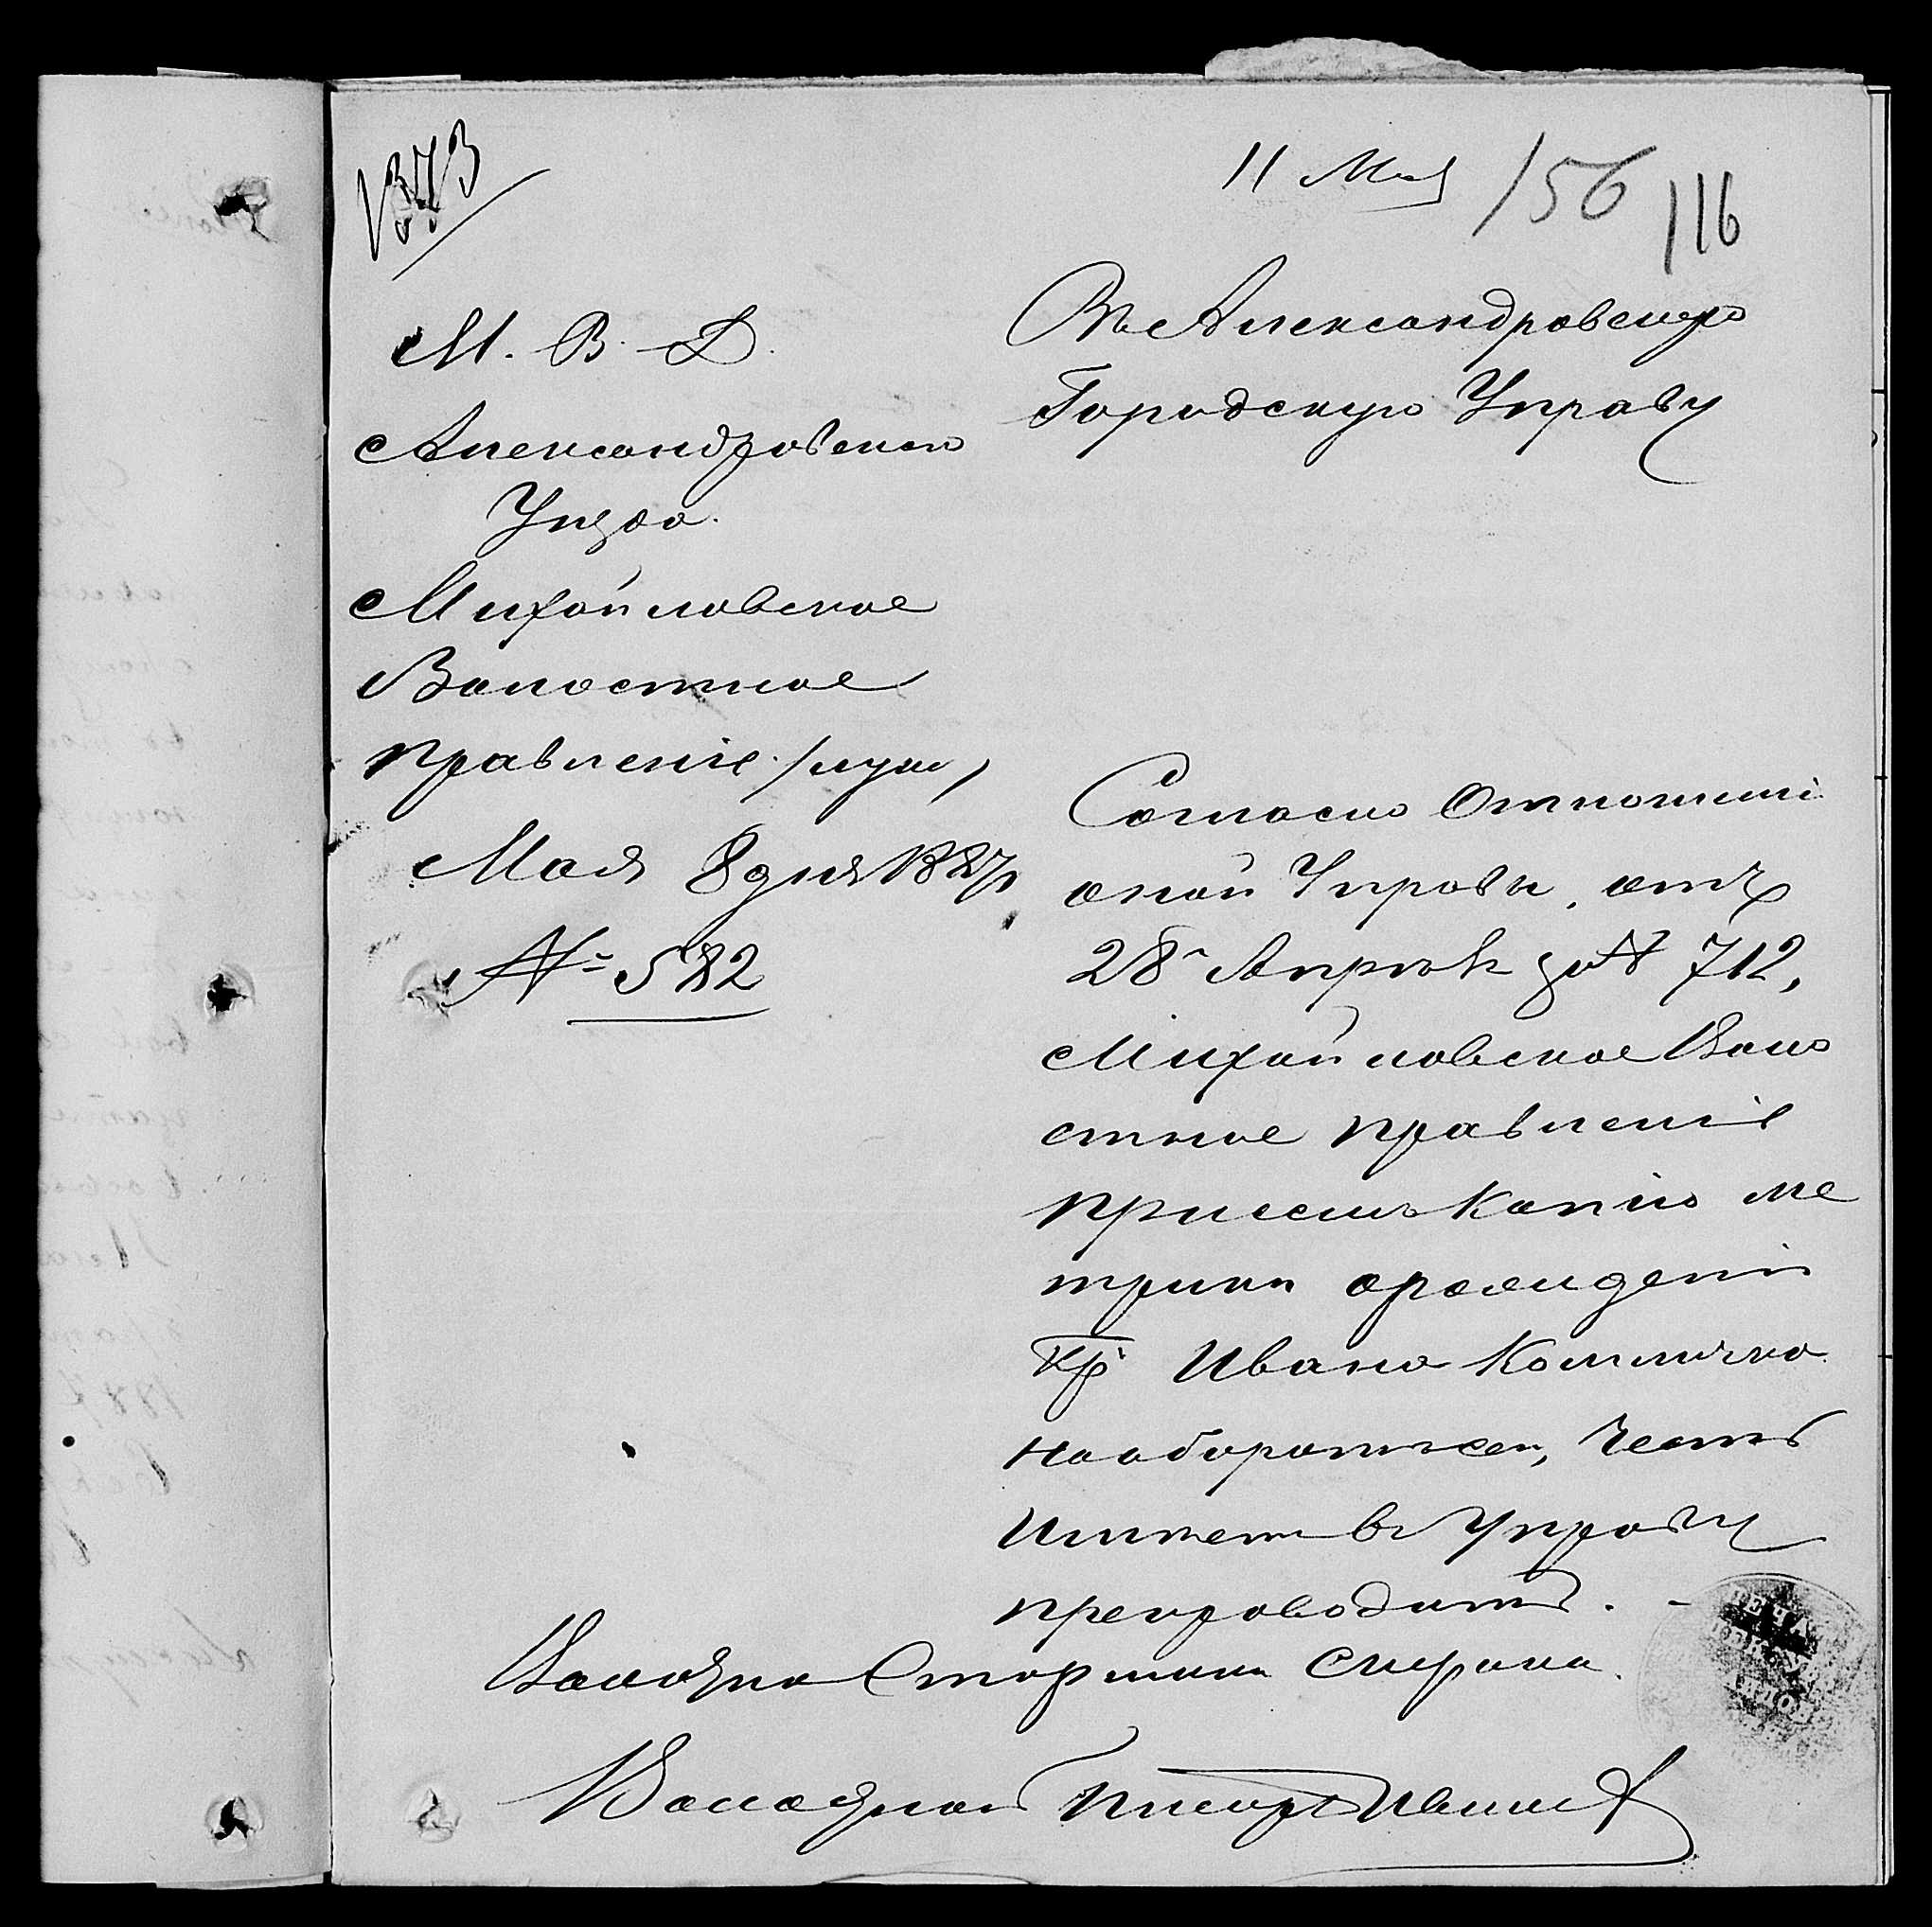 1373
11 Мая
156
116
М. В. Д.
Александровскаго
Уѣзда.
Михайловское
Волостное
правленіе
Мая 8 дня 1887 г
№ 582
Въ Александровскую
Городскую Управу
Согласно Отношені
оной Управы, отъ
28 Апрѣля за № 712,
Михайловское Воло
стное правленіе
при семъ Копію ме
трики о рожденіи
кр Ивана
на оборотѣ сего, Честь
Имѣетъ въ Управу
препроводить. -
Волостно Старшина
Волостной Писарь